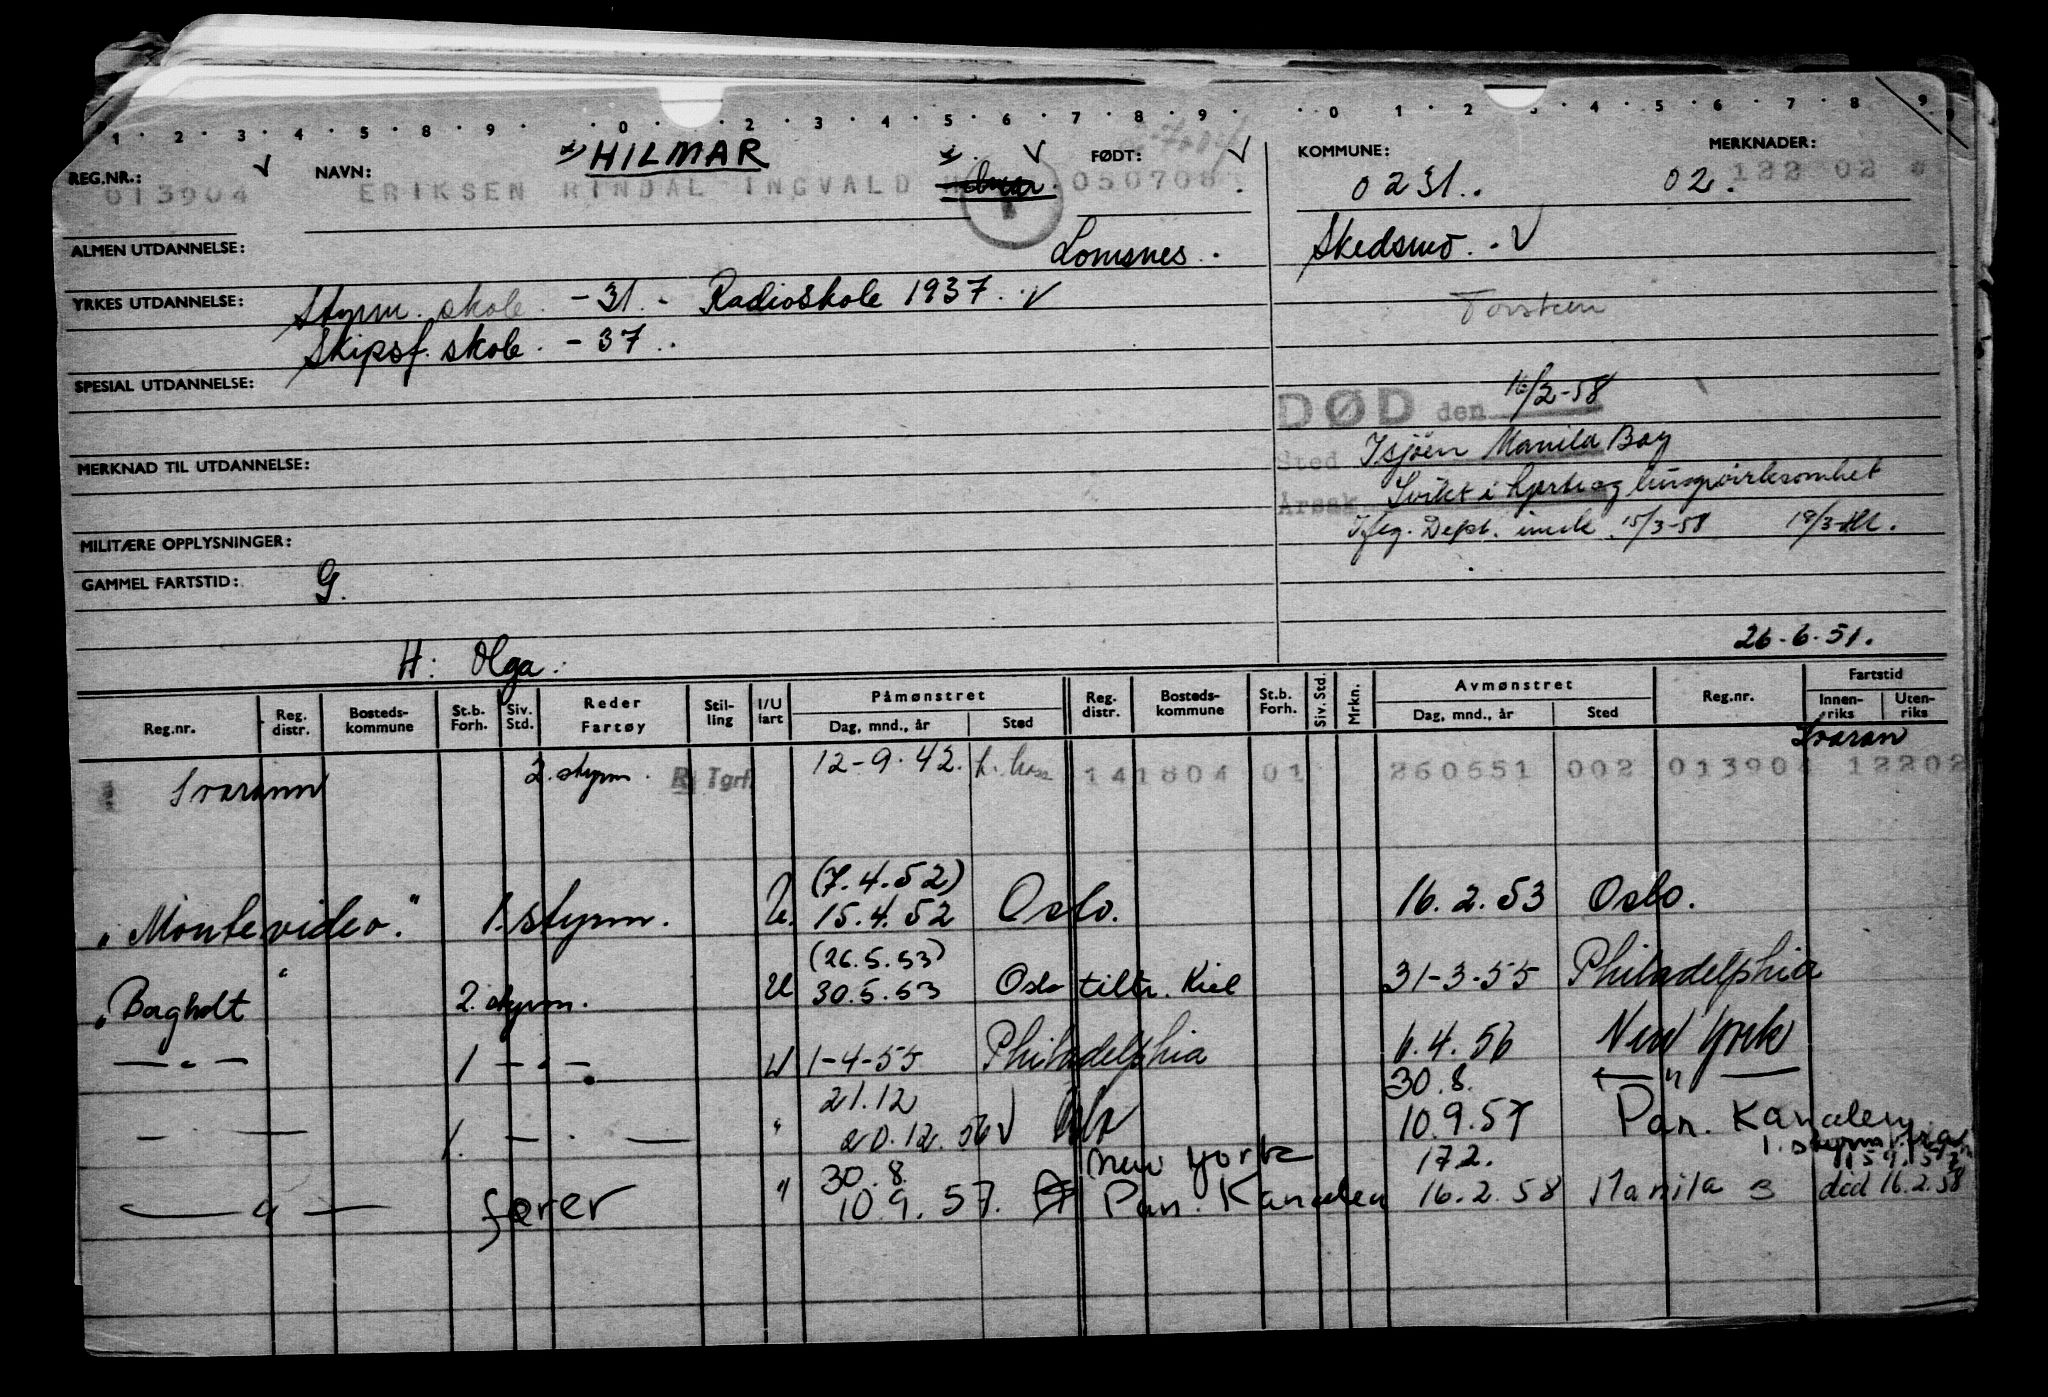 1 2 3 4 5 8 9 0 2 3 4 5 6 7 8 9 0 1 2 4 5 6 7 8 9
REG.NR.: 013904 NAVN: HILMAR ERIKSEN RINDAL INGVALD FØDT: 050708 KOMMUNE: 0231. MERKNADER: 02. 122 02
ALMEN UTDANNELSE: Lomsnes. Skedsmo.
YRKES UTDANNELSE: Styrm. skole. -31. - Radioskole 1937.
Torsteen
Skipsf. skole. - 37.
SPESIAL UTDANNELSE:
DØD den 16/2-58
MERKNAD TIL UTDANNELSE:
Sted I sjøen Manila Bay
Årsak Svikt i hjerte og lungevirksomhet
Iflg. Dept. innb. 15/3-58 19/3
MILITÆRE OPPLYSNINGER:
GAMMEL FARTSTID: G.
26-6-51.
H: Olga.
Reg.nr. Reg. distr. Bosteds-kommune St.b. Forh. Siv. Std. Reder Fartøy Stil-ling I/U fart Påmønstret Dag, mnd., år Sted Reg. distr. Bosteds-kommune St.b. Forh. Siv. Std. Mrkn. Avmønstret Dag, mnd., år Sted Reg.nr. Fartstid Innen-riks Uten-riks
Svaran
Svarann 2. styrm. R Tgrf 12-9-42. 141804 01 260651 002 013904 12202
(7.4.52)
"Montevideo." 1. styrm. U. 15.4.52 Oslo. 16.2.53 Oslo.
(26.5.53)
"Bagholt" 2. styrm. U 30.5.53 Oslo tiltr. Kiel 31-3-55 Philadelphia
— " — 1 — " — U 1-4-55 Philadelphia 6.4.56 New York
21.12 30.8. — " —
— " — 1. — " — " 20.12.56 Oslo 10.9.57 Pan. Kanalen
1. styrm. fra 15.9.57
30.8. New York 17.2.
— " — fører " 10.9.57. Pan. Kanalen 16.2.58 Manila S død 16.2.58